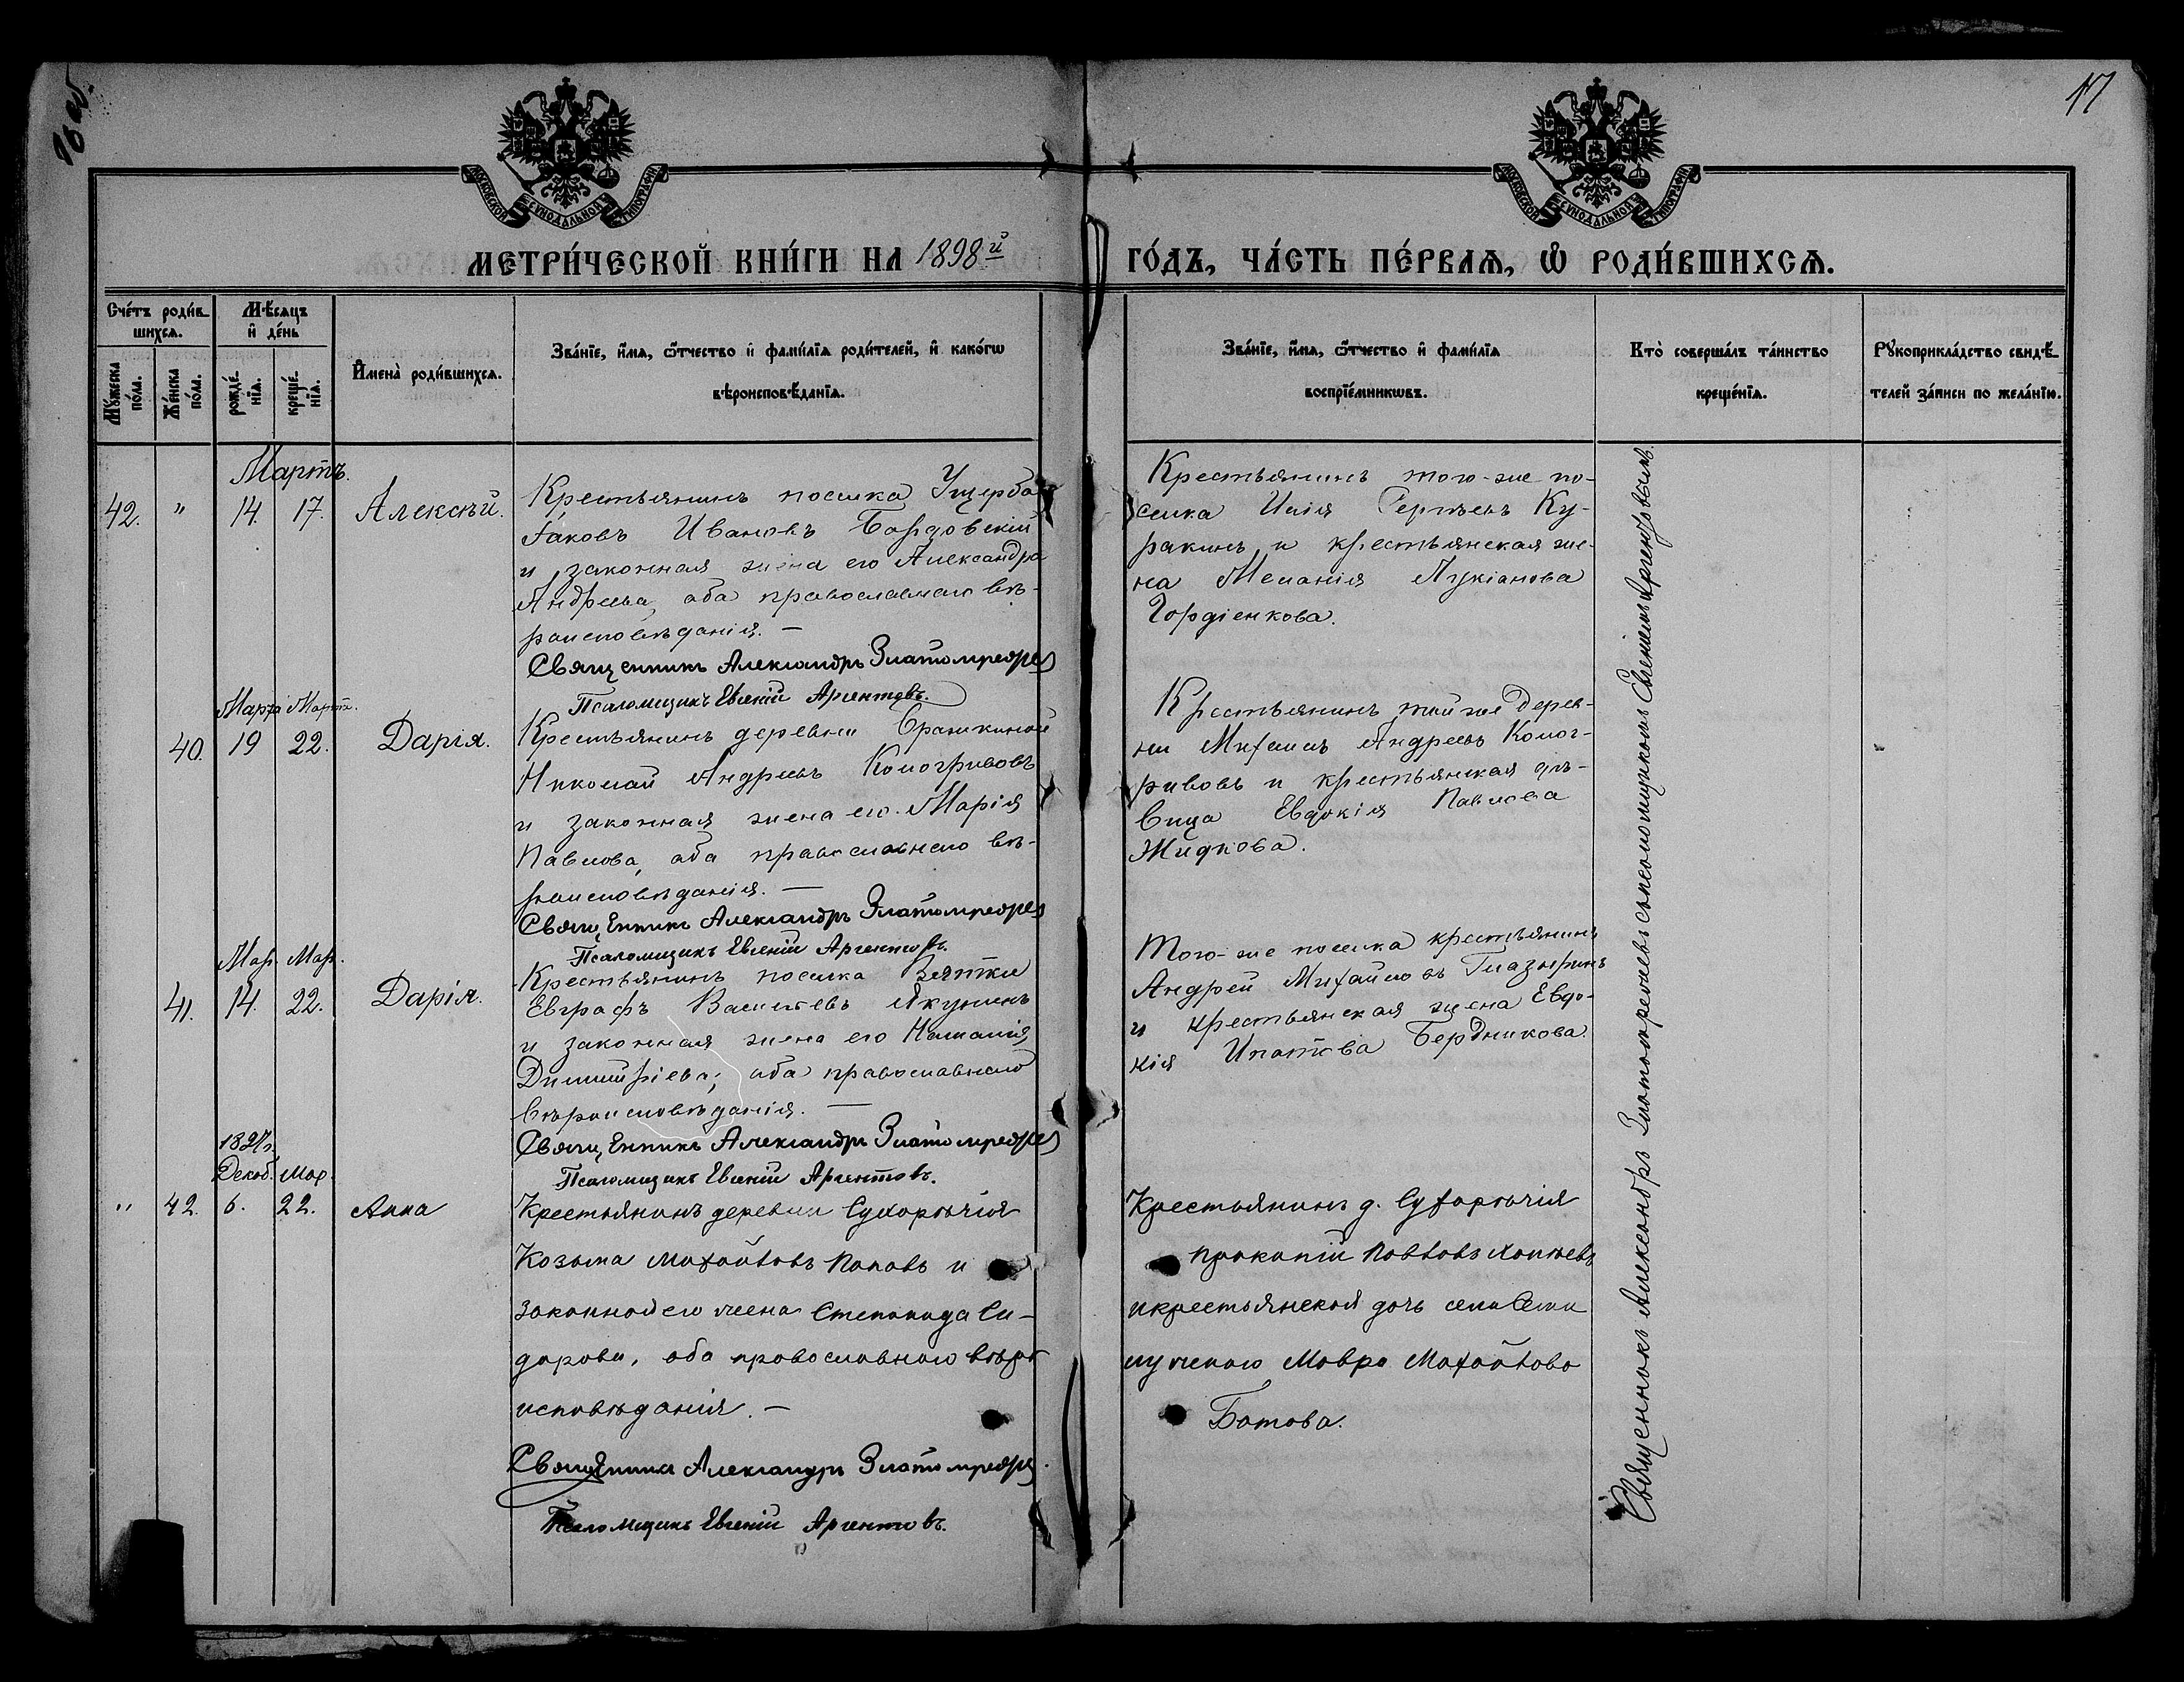 17
МОСКОВСКОЙ СУНОДАЛЬНОЙ ТИПОГРАФІИ
МОСКОВСКОЙ СУНОДАЛЬНОЙ ТИПОГРАФІИ
МЕТРИ́ЧЕСКОЙ КНИ́ГИ НА 1898й
ГО́ДЪ, ЧА́СТЬ ПЕ́РВАѦ, Ѡ҆ РОДИ́ВШИХСѦ.
Сче́тъ роди́в
шихсѧ.
Мѣ́сяцъ
и҆ де́нь
Мꙋ́жеска
по́ла.
Же́нска
по́ла.
рожде́
нїѧ.
креще́
нїѧ.
И҆мена̀ роди́вшихсѧ.
Зва́нїе, и҆́мѧ, ѻ҆́тчество и҆ фами́лїѧ роди́телей, и҆ како́гѡ
вѣроисповѣ́данїѧ.
Зва́нїе, и҆́мѧ, ѻ҆́тчество и҆ фами́лїѧ
воспрїе́мникѡвъ.
Кто̀ соверша́лъ та́инство
креще́нїѧ.
Рꙋкоприкла́дство свидѣ́
телей за́писи по жела́нїю.
Мартъ.
42. " 14. 17. Алексѣй.
Крестьянинъ поселка Ущерба
Іаковъ Ивановъ
и законная жена его Александра
Андреева, оба православнаго вѣ-
роисповѣданія. —
Священникъ Александръ Златомрежевъ
Псаломщикъ Евгеній Аргентовъ.
Крестьянинъ того-же по-
селка Илія Сергѣевъ Ку-
ракинъ и крестьянская же-
на Меланія Лукіанова
Гордіенкова.
Марта Марта.
40. 19 22. Дарія.
Крестьянинъ деревни
Николай Андреевъ Кологривовъ
и законная жена его Марія
Павлова, оба православнаго вѣ-
роисповѣданія. —
Священникъ Александръ Златомрежевъ
Псаломщикъ Евгеній Аргентовъ.
Крестьянинъ той же дерев-
ни Михаилъ Андреевъ Колог-
ривовъ и крестьянская дѣ-
вица Евдокія Павлова
Жидкова.
Мар. Мар.
41. 14. 22. Дарія.
Крестьянинъ поселка Вятки
Евграфъ Васильевъ Якунинъ
и законная жена его Наталія
Димитріева, оба православнаго
вѣроисповѣданія. —
Священникъ Александръ Златомрежевъ
Псаломщикъ Евгеній Аргентовъ.
Того-же поселка крестьянинъ
Андрей Михайловъ
и крестьянская жена Евдо-
кія Ипатова Бердникова.
Декаб. Мар.
" 42. 6. 22. Анна
Крестьянинъ деревни Сухорѣчія
Козьма Михайловъ Поповъ и
законная его жена Степанида Си-
дорова, оба православнаго вѣро
исповѣданія. —
Священникъ Александръ Златомрежевъ
Псаломщикъ Евгеній Аргентовъ.
Крестьянинъ д. Сухорѣчія
Прокопій Павловъ
и крестьянская дочь села
Мавра Михайлова
Батова.
Священникъ Александръ Златомрежевъ съ псаломщикомъ Евгеніемъ Аргентовымъ.